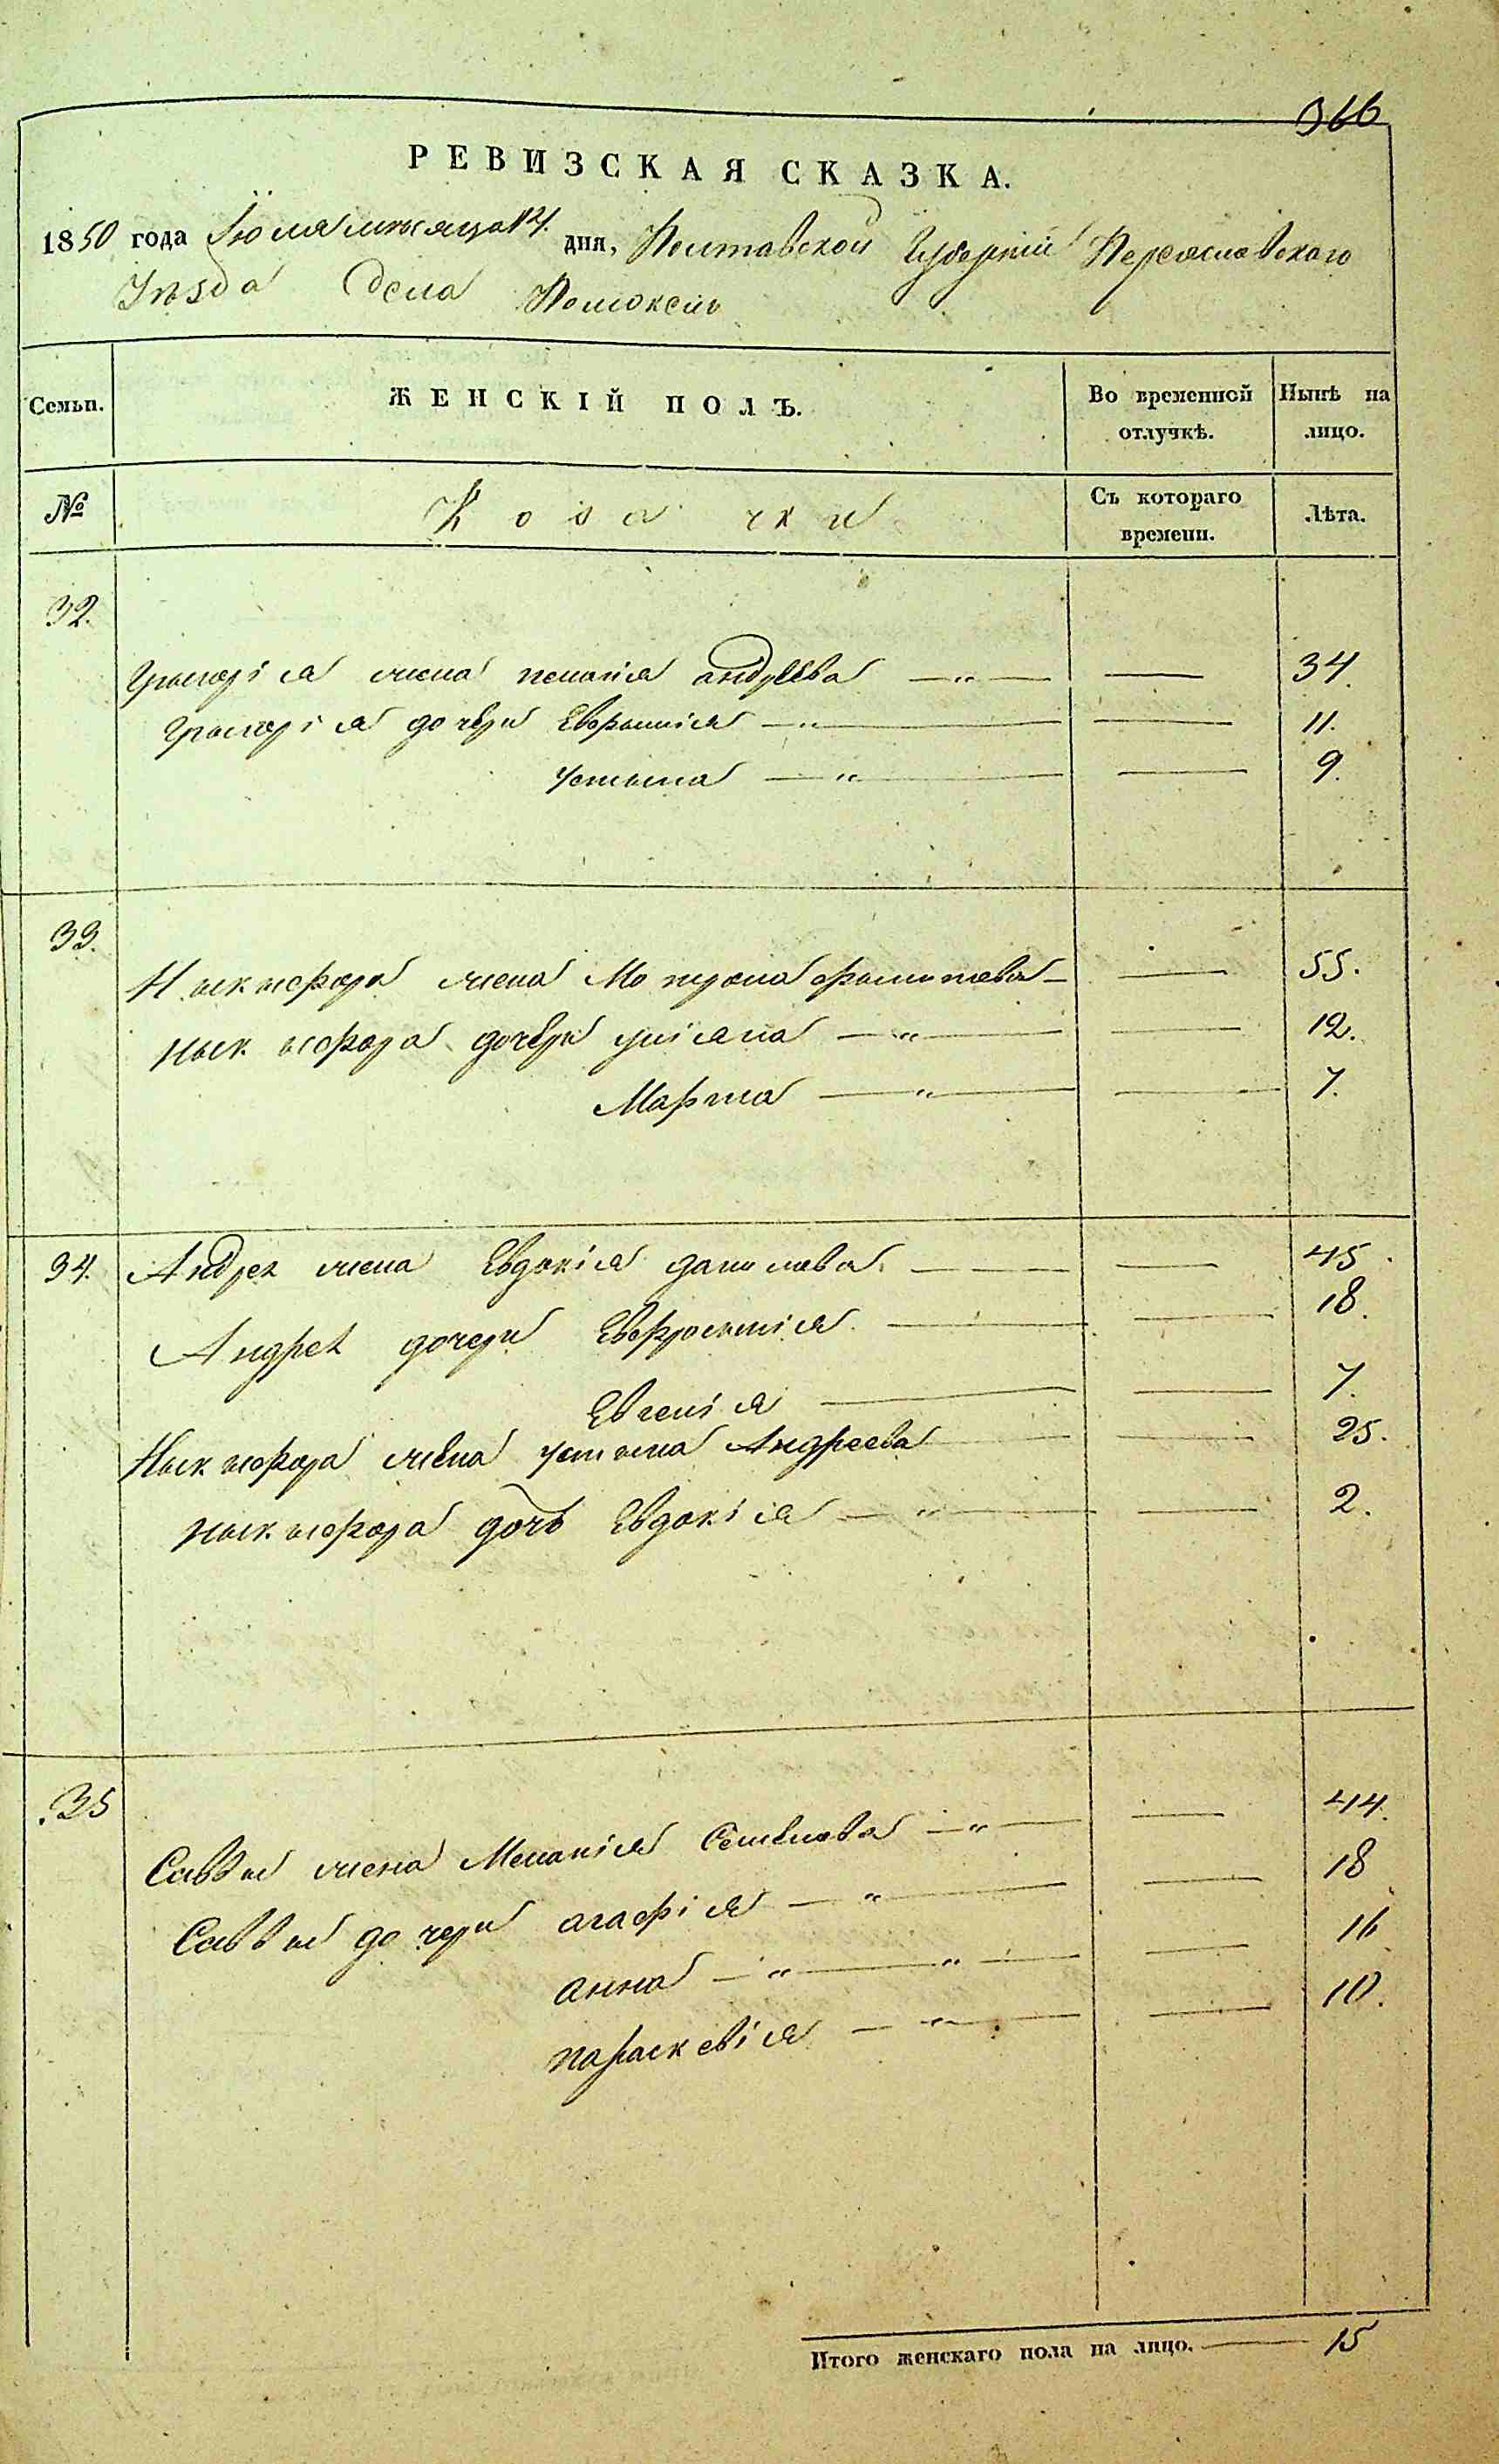 366
РЕВИЗСКАЯ СКАЗКА.
1850 года Іюля мѣсяца 12. дня, Полтавской Губерніи Переяславского
Уѣзда Села Помоклъ
Семьи. ЖЕНСКІЙ ПОЛЪ. Во временной отлучкѣ. Нынѣ на лицо.
№ Козачки Съ котораго времени. Лѣта.
32.
Григорія жена андрѣева — „ — — 34.
Григорія дочери — „ — — 11.
Устына — „ — — 9.
33.
Ныкыфора жена Мотрона филипова — — 55.
Ныкыфора дочери улiяна — „ — — 12.
Марѳа — „ — — 7.
34. Андрея жена Евдокія данилова — — 45.
Андрея дочери Евфросынія — — 18.
Евгенія — — 7.
Ныкыфора жена Устына Андреева — — 25.
Ныкыфора дочь Евдокія — „ — — 2.
35
Саввы жена Меланія Семенова — „ — — 44.
Саввы дочери агафія — „ — — 18
анна — „ — „ — — 16
параскевія — „ — — 10.
Итого женскаго пола на лицо. — 15